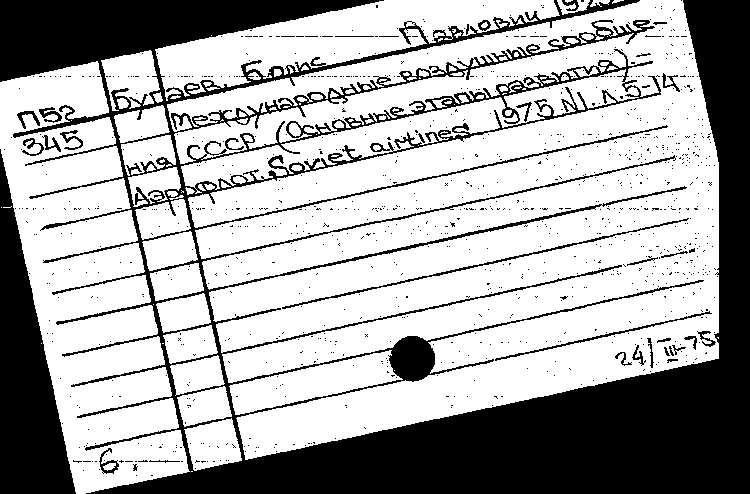 П52 Бугаев, Борис Павлович, 192
345 Международные воздушные сообще-
ния СССР (Основные этапы развития).-
Аэрофлот. Soviet airlines 1975. N1. л.5-14.
24/III-75
6.